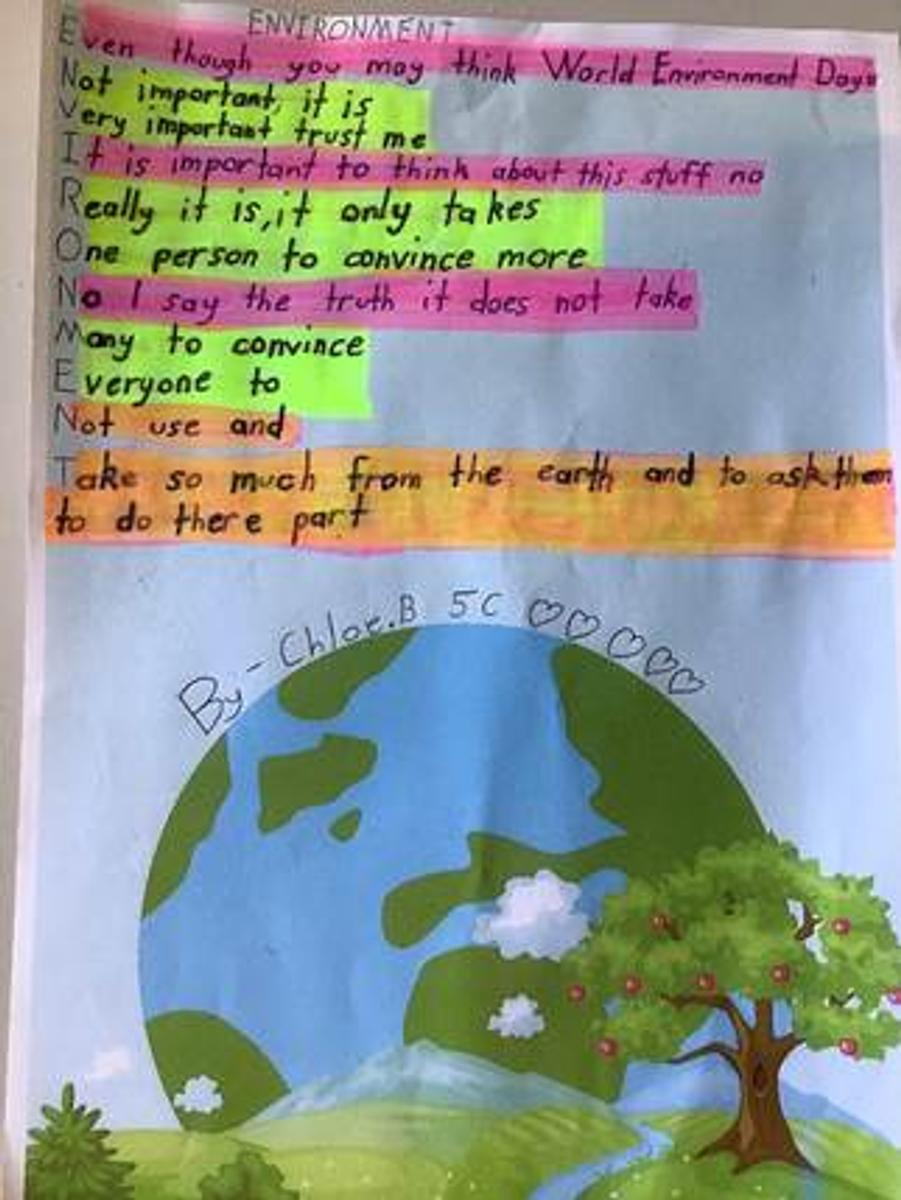 ENVIRONMENT
Even though you may think World Environment Day's
Not important, it is
Very important trust me
It is important to think about this stuff no
Really it is, it only takes
One person to convince more
No I say the truth it does not take
Many to convince
Everyone to
Not use and
Take so much from the earth and to ask them
to do there part
By - Chloe.B 5C ♡♡♡♡♡